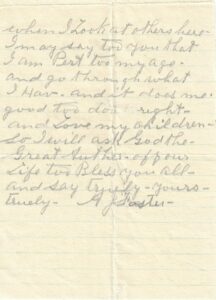 when I Look at others here-
I may say too you that
I am Pert too my age-
and go through what
I Hav- and it does me
good too do right-
and Love my children-
So I will ask God the-
Great Auther- of our
Life too Bless you all-
and say truely- yours-
truely- A J Foster-